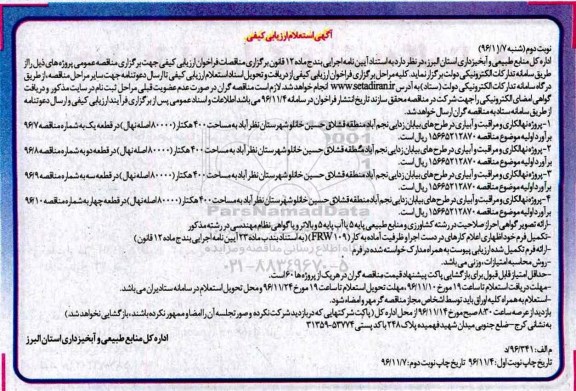 آگهی استعلام ارزیابی کیفی
نوبت دوم (شنبه ۹۶/۱۱/۷)
اداره کل منابع طبیعی و آبخیزداری استان البرز در نظر دارد به استناد آیین نامه اجرایی بند ج ماده ۱۲ قانون برگزاری مناقصات فراخوان ارزیابی کیفی جهت برگزاری مناقصه عمومی پروژه های ذیل را از
طریق سامانه تدارکات الکترونیکی دولت برگزار نماید. کلیه مراحل برگزاری فراخوان ارزیابی کیفی از دریافت و تحویل اسناد استعلام ارزیابی کیفی تا ارسال دعوتنامه جهت سایر مراحل مناقصه، از طریق
درگاه سامانه تدارکات الکترونیکی دولت (ستاد) به آدرس www.setadiran.ir انجام خواهد شد. لازم است مناقصه گران در صورت عدم عضویت قبلی مراحل ثبت نام در سایت مذکور و دریافت
گواهی امضای الکترونیکی را جهت شرکت در مناقصه محقق سازند تاریخ انتشار فراخوان در سامانه ۹۶/۱۱/۴ می باشد اطلاعات و اسناد عمومی پس از برگزاری فرآیند ارزیابی کیفی و ارسال دعوتنامه
از طریق سامانه ستاد به مناقصه گران ارسال خواهد شد.
۱-پروژه نهالکاری و مراقبت و آبیاری در طرح های بیابان زدایی نجم آباد منطقه قشلاق حسین خانلو شهرستان نظر آباد به مساحت ۴۰۰ هکتار (۸۰۰۰۰ اصله نهال) در قطعه یک به شماره مناقصه ۹۶/۷
برآورد اولیه موضوع مناقصه ۱۵۶۶۵۲۱۲۸۷۰ ریال است.
۲-پروژه نهالکاری و مراقبت و آبیاری در طرح های بیابان زدایی نجم آباد منطقه قشلاق حسین خانلو شهرستان نظر آباد به مساحت ۴۰۰ هکتار (۸۰۰۰۰ اصله نهال) در قطعه دو به شماره مناقصه ۹۶/۸
برآورد اولیه موضوع مناقصه ۱۵۶۶۵۲۱۲۸۷۰ ریال است.
۳-پروژه نهالکاری و مراقبت و آبیاری در طرح های بیابان زدایی نجم آباد منطقه قشلاق حسین خانلو شهرستان نظر آباد به مساحت ۴۰۰ هکتار (۸۰۰۰۰ اصله نهال) در قطعه سه به شماره مناقصه ۹۶/۹
برآورد اولیه موضوع مناقصه ۱۵۶۶۵۲۱۲۸۷۰ ریال است.
۴-پروژه نهالکاری و مراقبت و آبیاری در طرح های بیابان زدایی نجم آباد منطقه قشلاق حسین خانلو شهرستان نظر آباد به مساحت ۴۰۰ هکتار (۸۰۰۰۰ اصله نهال) در قطعه چهار به شماره مناقصه ۹۶/۱۰
برآورد اولیه موضوع مناقصه ۱۵۶۶۵۲۱۲۸۷۰ ریال است.
-ارائه تصویر گواهی احراز صلاحیت در رشته کشاورزی و منابع طبیعی پایه ۵ یا آب پایه ۵ و بالاتر و یا گواهی نظام مهندسی در رشته مذکور
-تکمیل فرم خود اظهاری اعلام کارهای در دست اجرا و ظرفیت آماده به کار (FRW۱۰۹) (به استناد بند ب ماده ۲۳ آیین نامه اجرایی بند ج ماده ۱۲ قانون)
-ارائه فرم تکمیل شده ارزیابی پیوست به همراه مدارک خواسته شده در فرم
-روش محاسبه امتیازات، وزنی می باشد.
-حداقل امتیاز قابل قبول برای بازگشایی پاکت پیشنهاد قیمت مناقصه گران در هر یک از پروژه ها ۶۰ است.
-مهلت دریافت استعلام تا ساعت ۱۹ مورخ ۹۶/۱۱/۱۰، مهلت تحویل استعلام تا ساعت ۱۹ مورخ ۹۶/۱۱/۲۴ و محل تحویل استعلام در سامانه ستاد ایران می باشد.
-استعلام به همراه کلیه اوراق باید توسط اشخاص مجاز مناقصه گر مهر و امضاء شود.
بازدید از عرصه ساعت ۸:۳۰ صبح مورخ ۹۶/۱۱/۱۴ از محل اداره کل (پاکت شرکتهایی که در بازدید شرکت نکرده و صورتجلسه آن را امضا و ممهور نکرده باشند، بازگشایی نخواهد شد.)
به نشانی کرج-ضلع جنوبی میدان شهید فهمیده پلاک ۲۴۸ با کد پستی ۳۱۳۵۹-۵۳۷۷۴
اداره کل منابع طبیعی و آبخیزداری استان البرز
م الف: ۹۶/۳۴۱/د
تاریخ چاپ نوبت اول: ۹۶/۱۱/۴ تاریخ چاپ نوبت دوم: ۹۶/۱۱/۷
ParsNamadData
۰۲۱-۸۸۳۴۹۶۷۰-۵